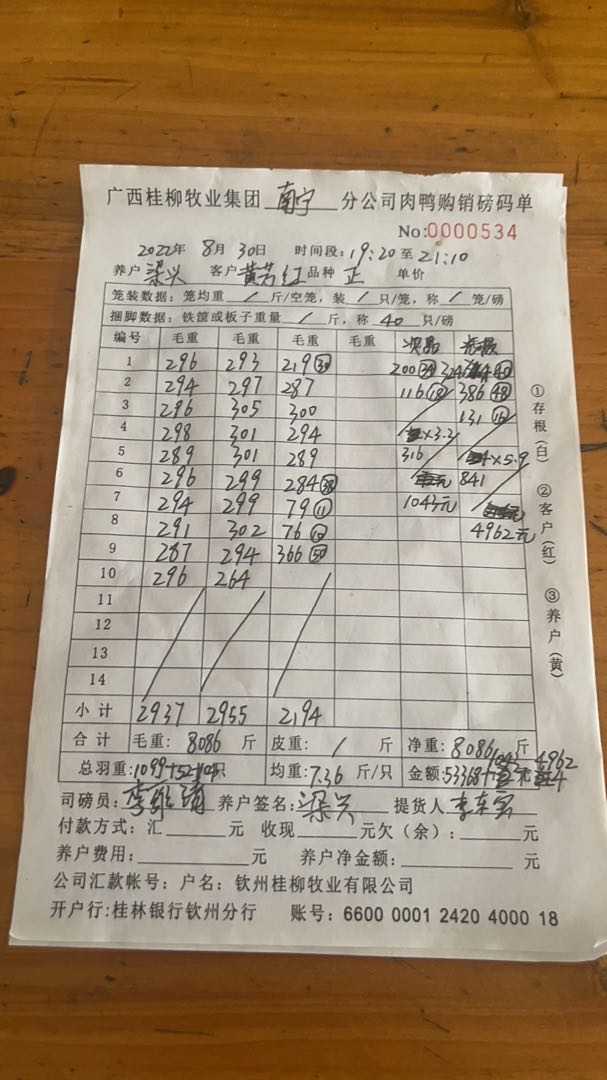 广西桂柳牧业集团 南宁 分公司肉鸭购销磅码单
No:0000534
2022年 8月 30日 时间段:19:20至21:10
养户 梁兴 客户 黄芳红 品种 正 单价
笼装数据:笼均重 / 斤/空笼,装 / 只/笼,称 / 笼/磅
捆脚数据:铁筐或板子重量 / 斤,称 40 只/磅
编号 毛重 毛重 毛重 毛重 次品
1 296 293 219 30 200 34
2 294 297 287 116 18 386 48
3 296 305 300 131 16
4 298 301 294 ×3.3
5 289 301 289 316 ×5.9
6 296 299 284 38 841
7 294 299 79 11 1043元
8 291 302 76 10 4962元
9 287 294 366 50
10 296 264
11
12
13
14
小计 2937 2955 2194
合计 毛重: 8086 斤 皮重: / 斤 净重: 8086 斤
总羽重:1099+52+104只 均重:7.36 斤/只 金额:53368+1043 元 4962
司磅员: 养户签名:梁兴 提货人
付款方式:汇 元 收现 元欠(余): 元
养户费用: 元 养户净金额: 元
公司汇款帐号:户名:钦州桂柳牧业有限公司
开户行:桂林银行钦州分行 账号:6600 0001 2420 4000 18
①存根(白) ②客户(红) ③养户(黄)